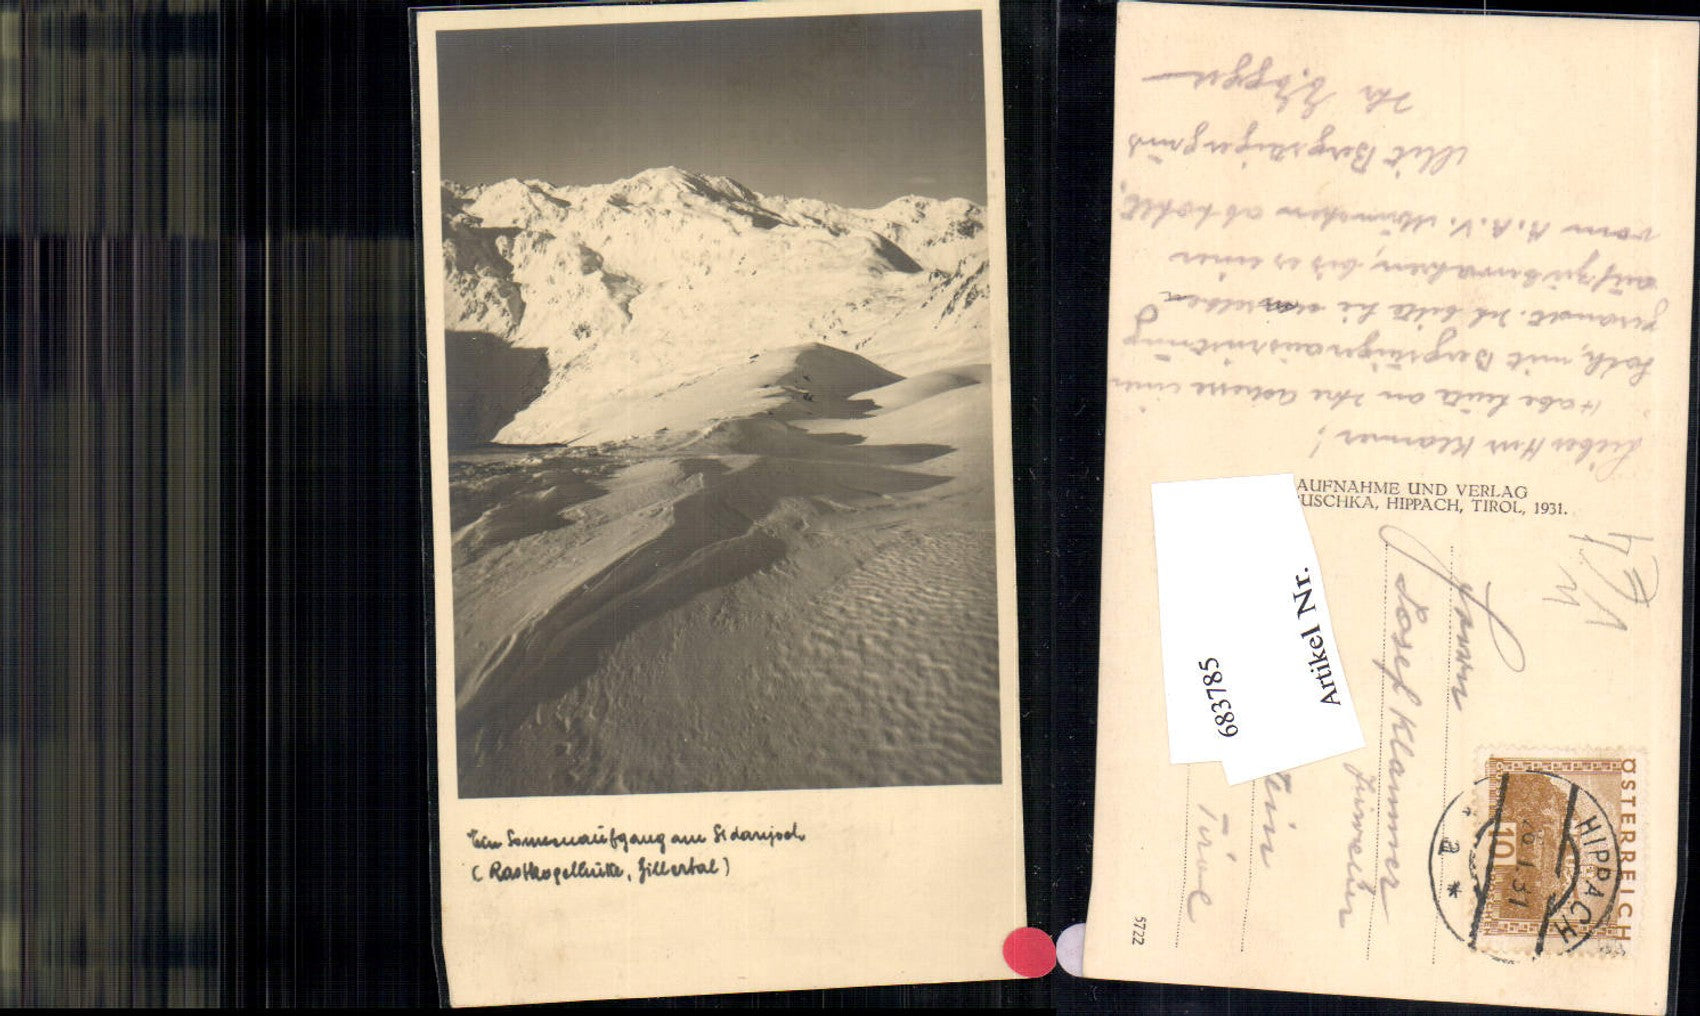 Ein Sonnenaufgang am Sidanjoch
(Rastkogelhütte, Zillertal)
Lieber Herr Klammer!
Habe heute an Ihre Adresse einen
Sack, mit Bergsteigerausrüstung
gesandt. Ich bitte Sie denselben
aufzubewahren, bis es einer
vom A.A.V. München abholt.
Mit Bergsteigergruß
Ihr
AUFNAHME UND VERLAG
USCHKA, HIPPACH, TIROL, 1931.
Herrn
Josef Klammer
Tirol
Artikel Nr.
683785
5722
ÖSTERREICH
10
HIPPACH
31
* a *